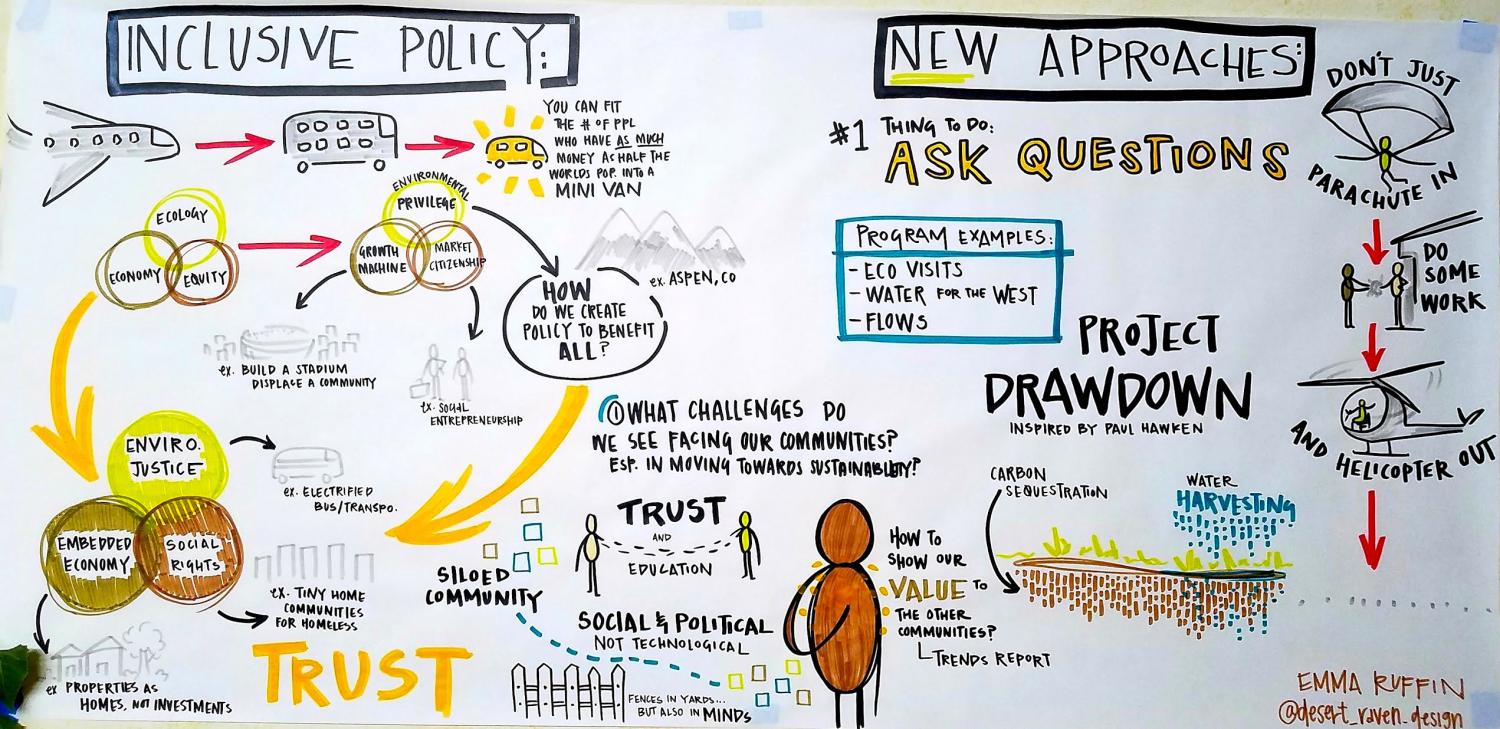 INCLUSIVE POLICY:
YOU CAN FIT
THE # OF PPL
WHO HAVE AS MUCH
MONEY AS HALF THE
WORLDS POP. INTO A
MINI VAN
ECOLOGY
ECONOMY
EQUITY
ENVIRONMENTAL
PRIVILEGE
GROWTH
MACHINE
MARKET
CITIZENSHIP
ex. ASPEN, CO
HOW
DO WE CREATE
POLICY TO BENEFIT
ALL?
ex. BUILD A STADIUM
DISPLACE A COMMUNITY
ex. SOCIAL
ENTREPRENEURSHIP
ENVIRO.
JUSTICE
EMBEDDED
ECONOMY
SOCIAL
RIGHTS
ex. ELECTRIFIED
BUS/TRANSPO.
ex. TINY HOME
COMMUNITIES
FOR HOMELESS
ex PROPERTIES AS
HOMES, NOT INVESTMENTS
TRUST
① WHAT CHALLENGES DO
WE SEE FACING OUR COMMUNITIES?
ESP. IN MOVING TOWARDS SUSTAINABILITY?
SILOED
COMMUNITY
TRUST
AND
EDUCATION
SOCIAL & POLITICAL
NOT TECHNOLOGICAL
FENCES IN YARDS...
BUT ALSO IN MINDS
HOW TO
SHOW OUR
VALUE TO
THE OTHER
COMMUNITIES?
TRENDS REPORT
NEW APPROACHES:
#1 THING TO DO:
ASK QUESTIONS
PROGRAM EXAMPLES:
- ECO VISITS
- WATER FOR THE WEST
- FLOWS
PROJECT
DRAWDOWN
INSPIRED BY PAUL HAWKEN
CARBON
SEQUESTRATION
WATER
HARVESTING
DON'T JUST
PARACHUTE IN
DO
SOME
WORK
AND HELICOPTER OUT
EMMA RUFFIN
@desert_raven_design